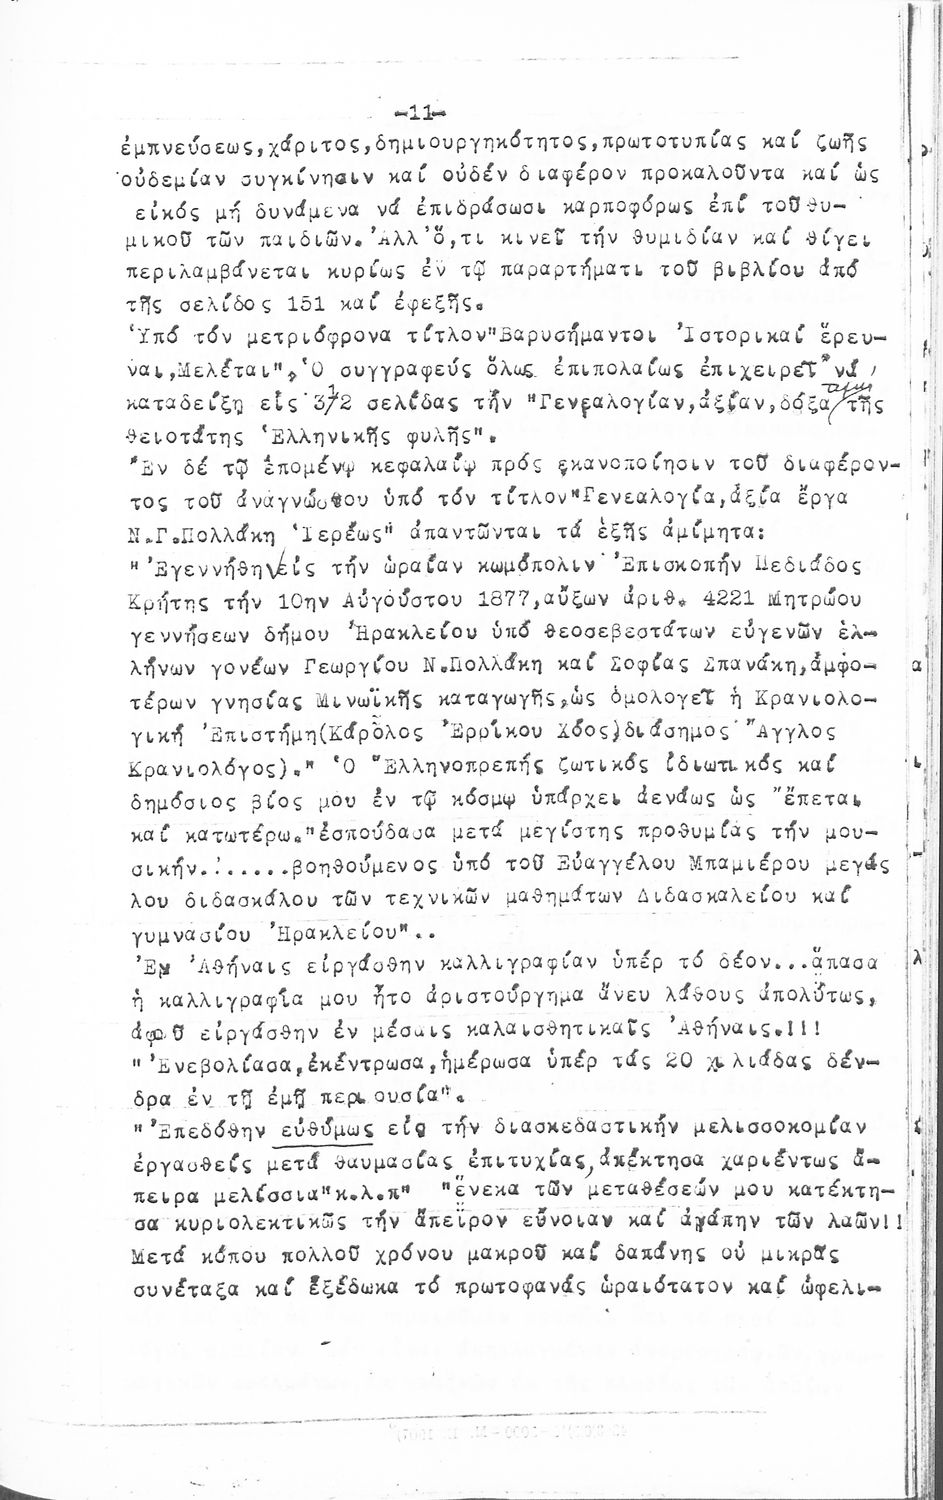 -11-
ἐμπνεύσεως,χάριτος,δημιουργηκότητος,πρωτοτυπίας καί ζωῆς
οὐδεμίαν συγκίνησιν καί οὐδέν διαφέρον προκαλοῦντα καί ὡς
εἰκός μή δυνάμενα νά ἐπιδράσωσι καρποφόρως ἐπί τοῦ θυ-
μικοῦ τῶν παιδιῶν. Ἀλλ'ὅ,τι κινεῖ τήν θυμιδίαν καί θίγει
περιλαμβάνεται κυρίως ἐν τῷ παραρτήματι τοῦ βιβλίου ἀπό
τῆς σελίδος 151 καί ἐφεξῆς.
Ὑπό τόν μετριόφρονα τίτλον"Βαρυσήμαντοι Ἱστορικαί ἔρευ-
ναι,Μελέται",Ὁ συγγραφεύς ὅλως ἐπιπολαίως ἐπιχειρεῖ νά
καταδείξῃ εἰς 3½ σελίδας τήν "Γενεαλογίαν,ἀξίαν,δόξα τῆς
θειοτάτης Ἑλληνικῆς φυλῆς".
Ἐν δέ τῷ ἑπομένῳ κεφαλαίῳ πρός ἱκανοποίησιν τοῦ διαφέρον-
τος τοῦ ἀναγνώστου ὑπό τόν τίτλον"Γενεαλογία,ἀξία ἔργα
Ν.Γ.Πολλάκη Ἱερέως" ἀπαντῶνται τά ἑξῆς ἀμίμητα:
"Ἐγεννήθην εἰς τήν ὡραίαν κωμόπολιν Ἐπισκοπήν Πεδιάδος
Κρήτης τήν 10ην Αὐγούστου 1877,αὔξων ἀριθ. 4221 Μητρώου
γεννήσεων δήμου Ἡρακλείου ὑπό θεοσεβεστάτων εὐγενῶν ἑλ-
λήνων γονέων Γεωργίου Ν.Πολλάκη καί Σοφίας Σπανάκη,ἀμφο-
τέρων γνησίας Μινωϊκῆς καταγωγῆς,ὡς ὁμολογεῖ ἡ Κρανιολο-
γική Ἐπιστήμη(Κάρολος Ἐρρίκου Χόος)διάσημος Ἄγγλος
Κρανιολόγος)." Ὁ Ἑλληνοπρεπής ζωτικός ἰδιωτικός καί
δημόσιος βίος μου ἐν τῷ κόσμῳ ὑπάρχει ἀενάως ὡς ἕπεται
καί κατωτέρω."ἐσπούδασα μετά μεγίστης προθυμίας τήν μου-
σικήν.......βοηθούμενος ὑπό τοῦ Εὐαγγέλου Μπαμιέρου μεγά
λου διδασκάλου τῶν τεχνικῶν μαθημάτων Διδασκαλείου καί
γυμνασίου Ἡρακλείου"..
Ἐν Ἀθήναις εἰργάσθην καλλιγραφίαν ὑπέρ τό δέον...ἅπασα
ἡ καλλιγραφία μου ἦτο ἀριστούργημα ἄνευ λάθους ἀπολύτως,
ἀφοῦ εἰργάσθην ἐν μέσαις καλαισθητικαῖς Ἀθήναις.!!!
"Ἐνεβολίασα,ἐκέντρωσα,ἡμέρωσα ὑπέρ τάς 20 χιλιάδας δέν-
δρα ἐν τῇ ἐμῇ περιουσίᾳ".
"Ἐπεδόθην εὐθύμως εἰς τήν διασκεδαστικήν μελισσοκομίαν
ἐργασθείς μετά θαυμασίας ἐπιτυχίας,ἀπέκτησα χαριέντως ἄ-
πειρα μελίσσια"κ.λ.π" "ἕνεκα τῶν μεταθέσεών μου κατέκτη-
σα κυριολεκτικῶς τήν ἄπειρον εὔνοιαν καί ἀγάπην τῶν λαῶν!!
Μετά κόπου πολλοῦ χρόνου μακροῦ καί δαπάνης οὐ μικρᾶς
συνέταξα καί ἐξέδωκα τό πρωτοφανές ὡραιότατον καί ὠφελι-